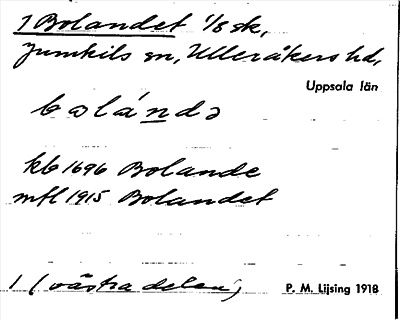 1 Bolandet 1/8 sk,
Jumkils sn, Ulleråkers hd,
Uppsala län
bɷlándɔ
kb 1696 Bolande
mtl 1915 Bolandet
1 (västra delen)
P. M. Lijsing 1918